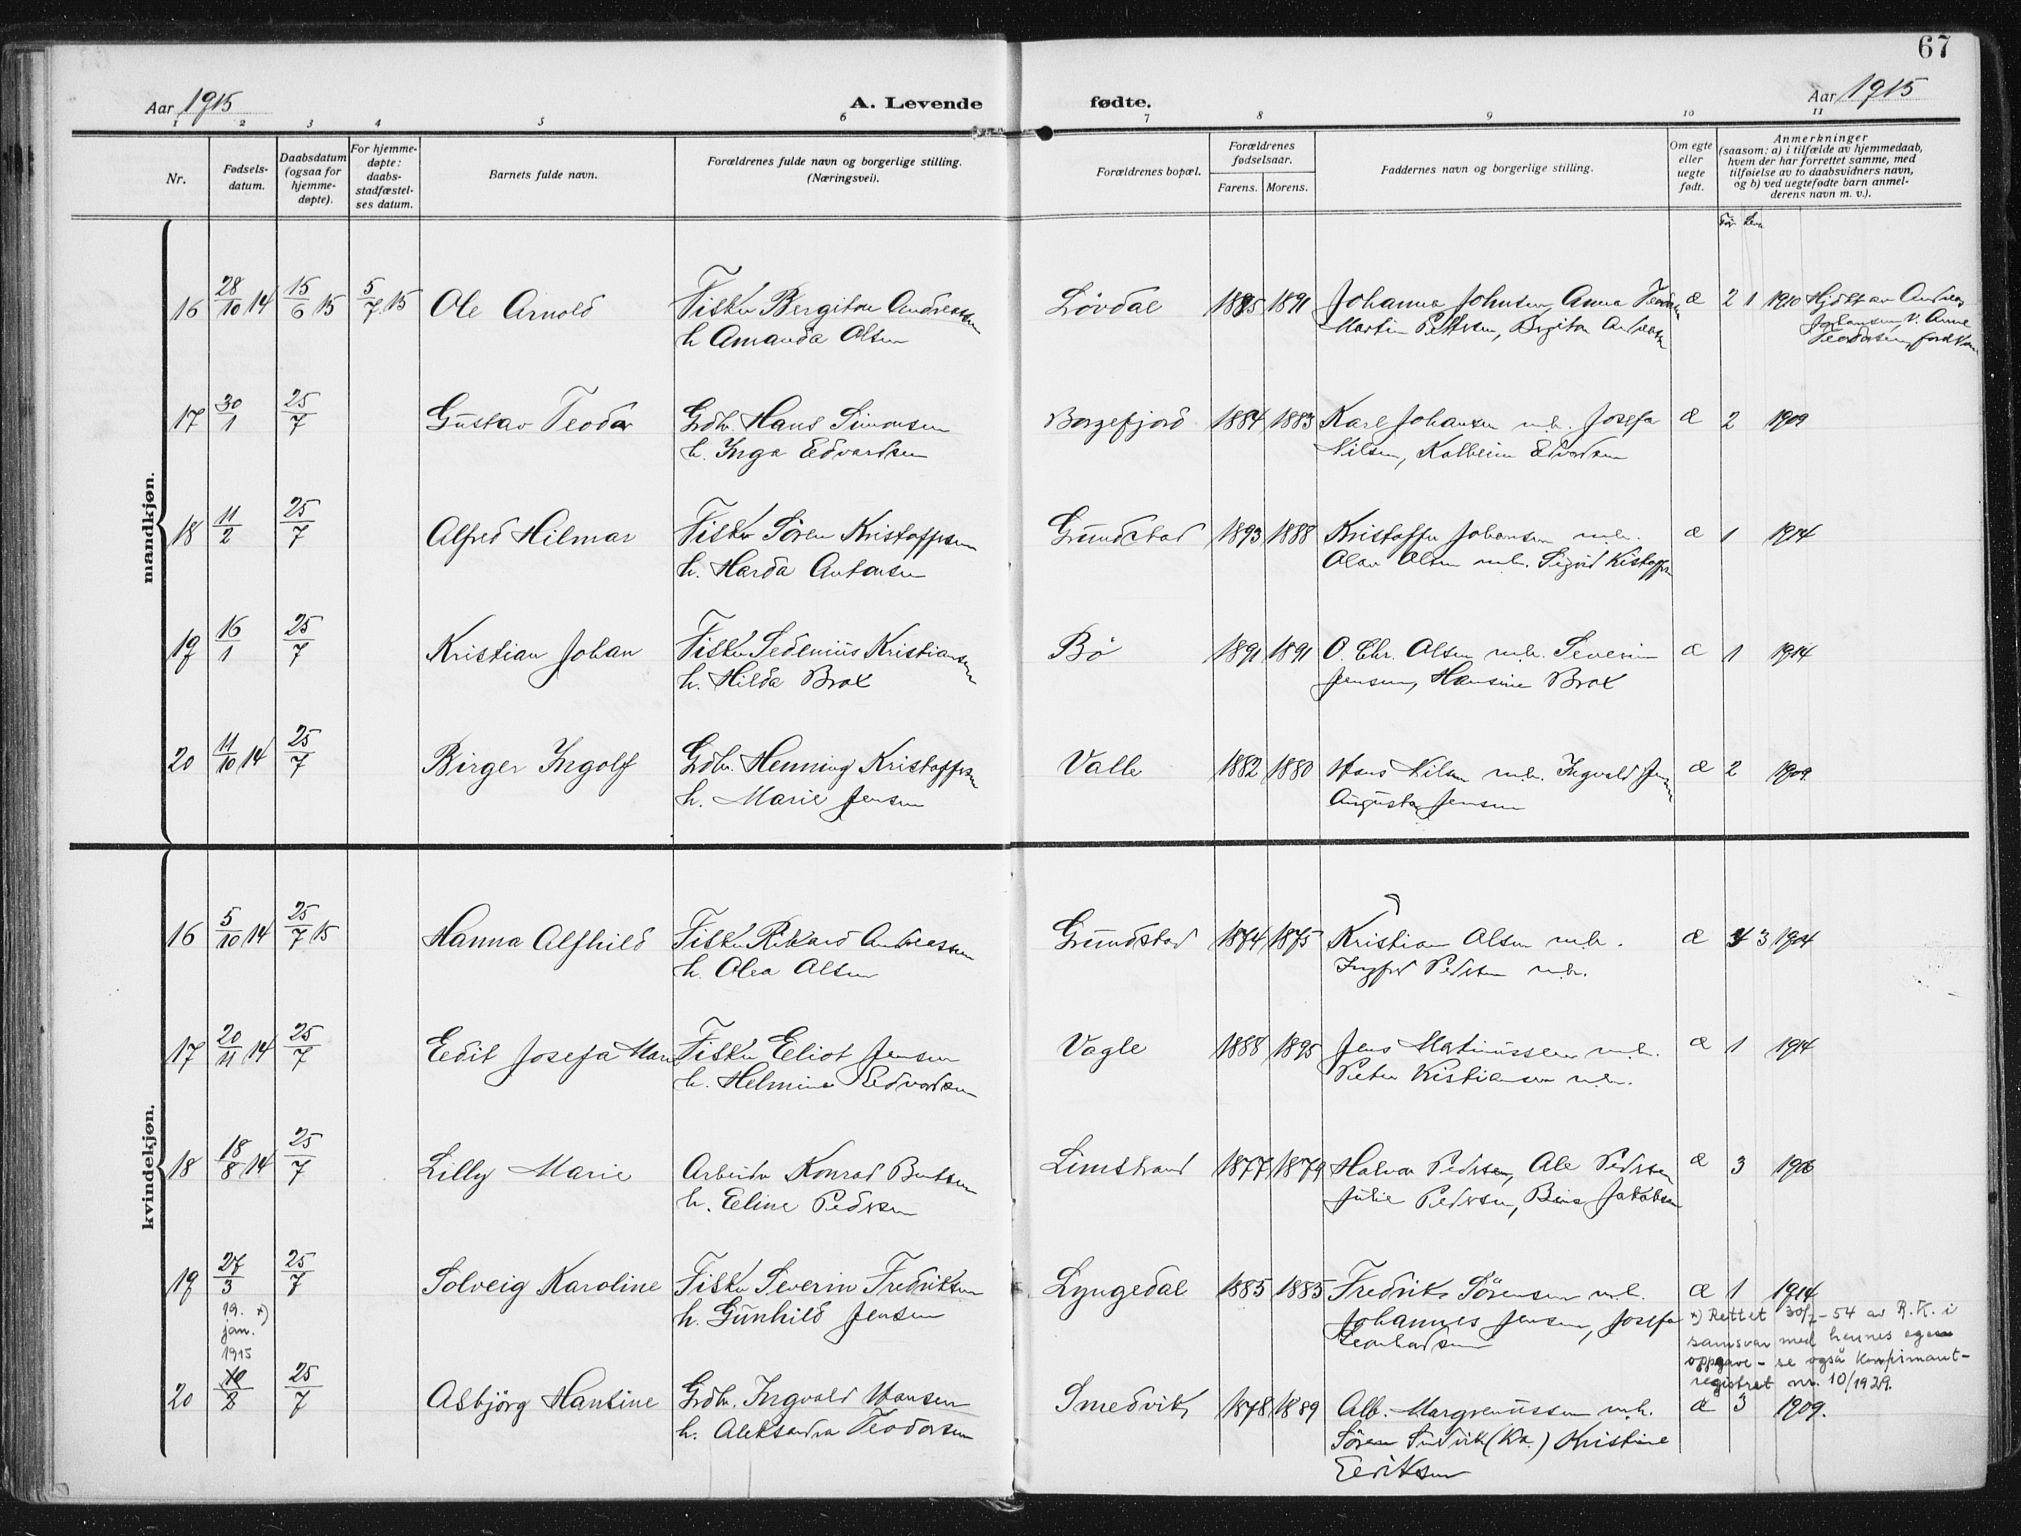 67
Aar 1915 A. Levende fødte. Aar 1915
1 2 3 4 5 6 7 8 9 10 11
Nr.
Fødsels-
datum.
Daabsdatum
(ogsaa for
hjemme-
døpte).
For hjemme-
døpte:
daabs-
stadfæstel-
ses datum.
Barnets fulde navn.
Forældrenes fulde navn og borgerlige stilling.
(Næringsvei).
Forældrenes bopæl.
Forældrenes
fødselsaar.
Farens. Morens.
Faddernes navn og borgerlige stilling.
Om egte
eller
uegte
født.
Anmerkninger
(saasom: a) i tilfælde av hjemmedaab,
hvem der har forrettet samme, med
tilføielse av to daabsvidners navn,
og b) ved uegtefødte barn anmel-
derens navn m. v.).
mandkjøn.
16 28/10 14 15/6 15 5/7 15 Ole Arnold Fisker Bergiton Andreassen Løvdal 1885 1891 Johanna Johnsen, Anna æ 2 1 1910
h. Amanda Olsen Martin Pettersen,
17 30/1 25/7 Gustav Teodor Grdbr. Hans Simonsen Borgefjord 1884 1883 Karl Johansen m.h. Josefa æ 2 1909
h. Inga Edvardsen Nilsen, Edvardsen
18 11/2 25/7 Alfred Hilmar Fisker Søren Kristoffersen Grundstad 1893 1888 Kristoffer Johansen m.h. æ 1 1914
h. Harda Antonsen Olav Olsen m.h. Sigrid Kistoffersen
19 16/1 25/7 Kristian Johan Fisker Sedenius Kristiansen Bø 1891 1891 O. Chr. Olsen m.h. Severin æ 1 1914
h. Hilda Brox Jensen, Hansine Brox
20 11/10 14 25/7 Birger Ingolf Grdbr. Henning Kristoffersen Valle 1882 1880 Hans Nilsen m.h. Ingvald Jensen æ 2 1909.
h. Marie Jensen Augusta Jensen
kvindekjøn.
16 5/10 14 25/7 15 Hanna Alfhild Fisker Rikard Andreassen Grundstad 1874 1875 Kristian Olsen m.h. æ 4 3 1904
h. Olea Olsen Pedersen m.h.
17 20/11 14 25/7 Eedit Josefa Marie Fisker Eliot Jensen Vagle 1888 1895 Jens Martinussen m.h. æ 1 1914
h. Helmine Edvardsen Peter Kistiansen m.h.
18 18/8 14 25/7 Lilly Marie Arbeider Konrad Berntsen Limstrand 1877 1879 Halvor Pedersen, Ole Pedersen æ 3
h. Eeline Pedersen Julie Pedersen, Jakobsen
19 27/3 25/7 Solveig Karoline Fisker Severin Fredriksen Lyngedal 1885 1885 Fredrik Sørensen m.h. æ 1 1914
h. Gunhild Jensen Johannes Jensen, Josefa
Leonhardsen
19. x)
jan.
1915
x) Rettet 30/7-54 av R.K. i
samsvar med hennes egen
oppgave - se også konfirmant-
registret nr. 10/1929.
20 10/2 25/7 Asbjörg Hansine Grdbr. Ingvald Hansen Smedvik 1878 1889 Alb. Margrenussen m.h. æ 3 1909.
h. Aleksandra Teodorsen Søren Smedvik (Ka.) Kristine
Eeriksen